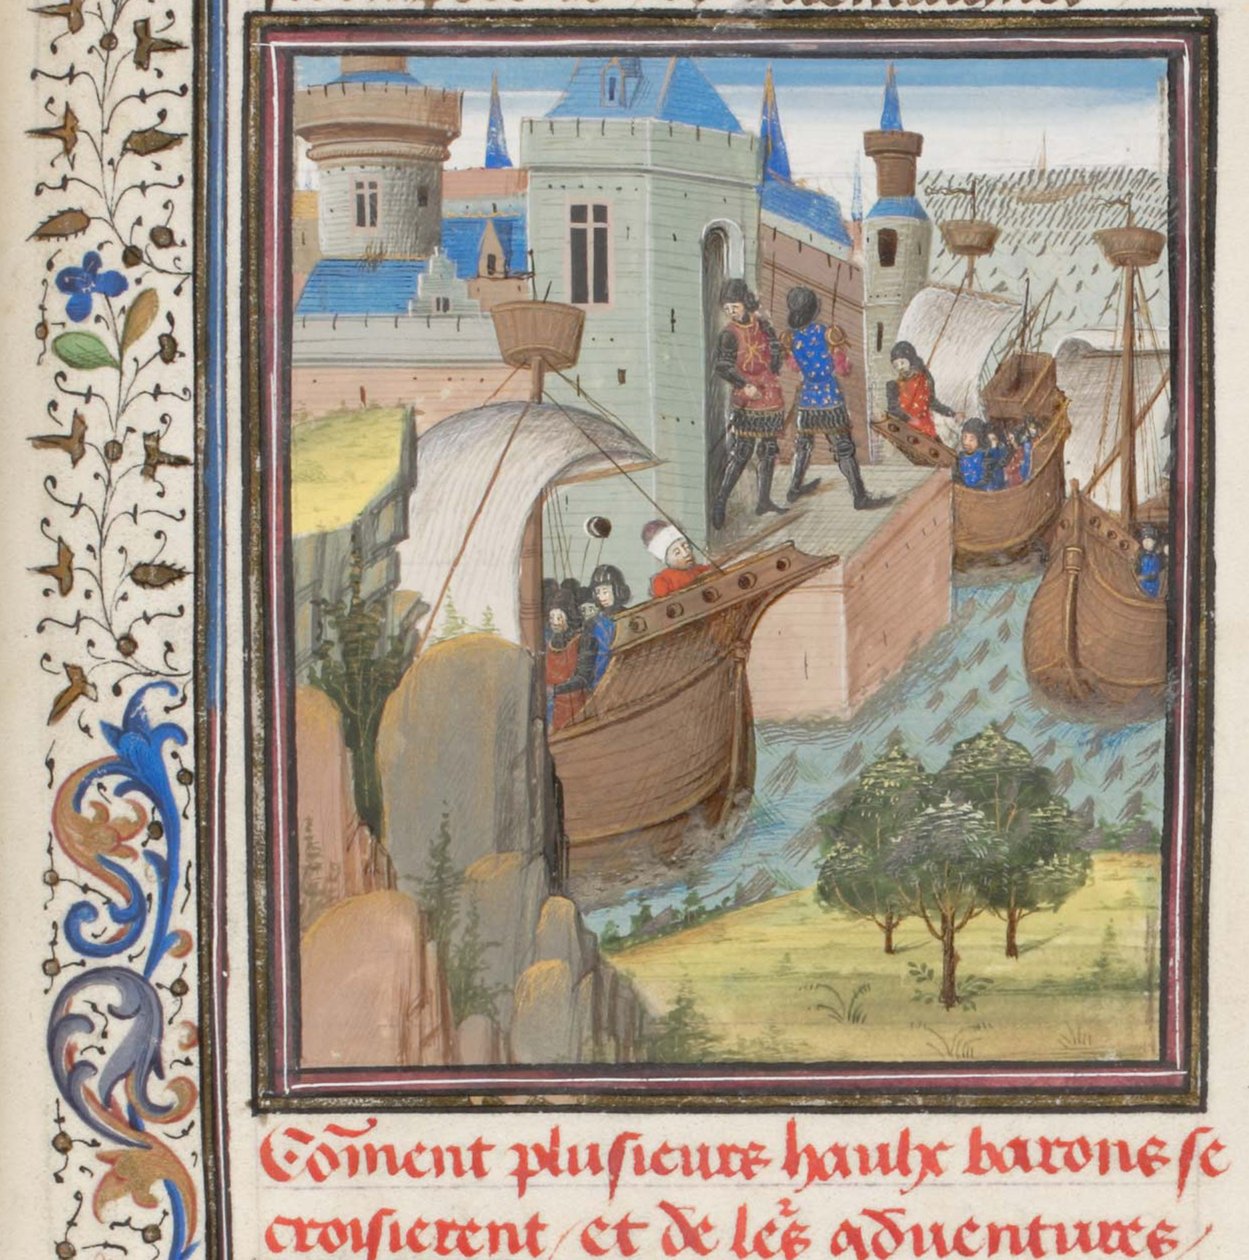 Cõment plusieurs haulx barons se
croisierent / et de leũs aduentures /